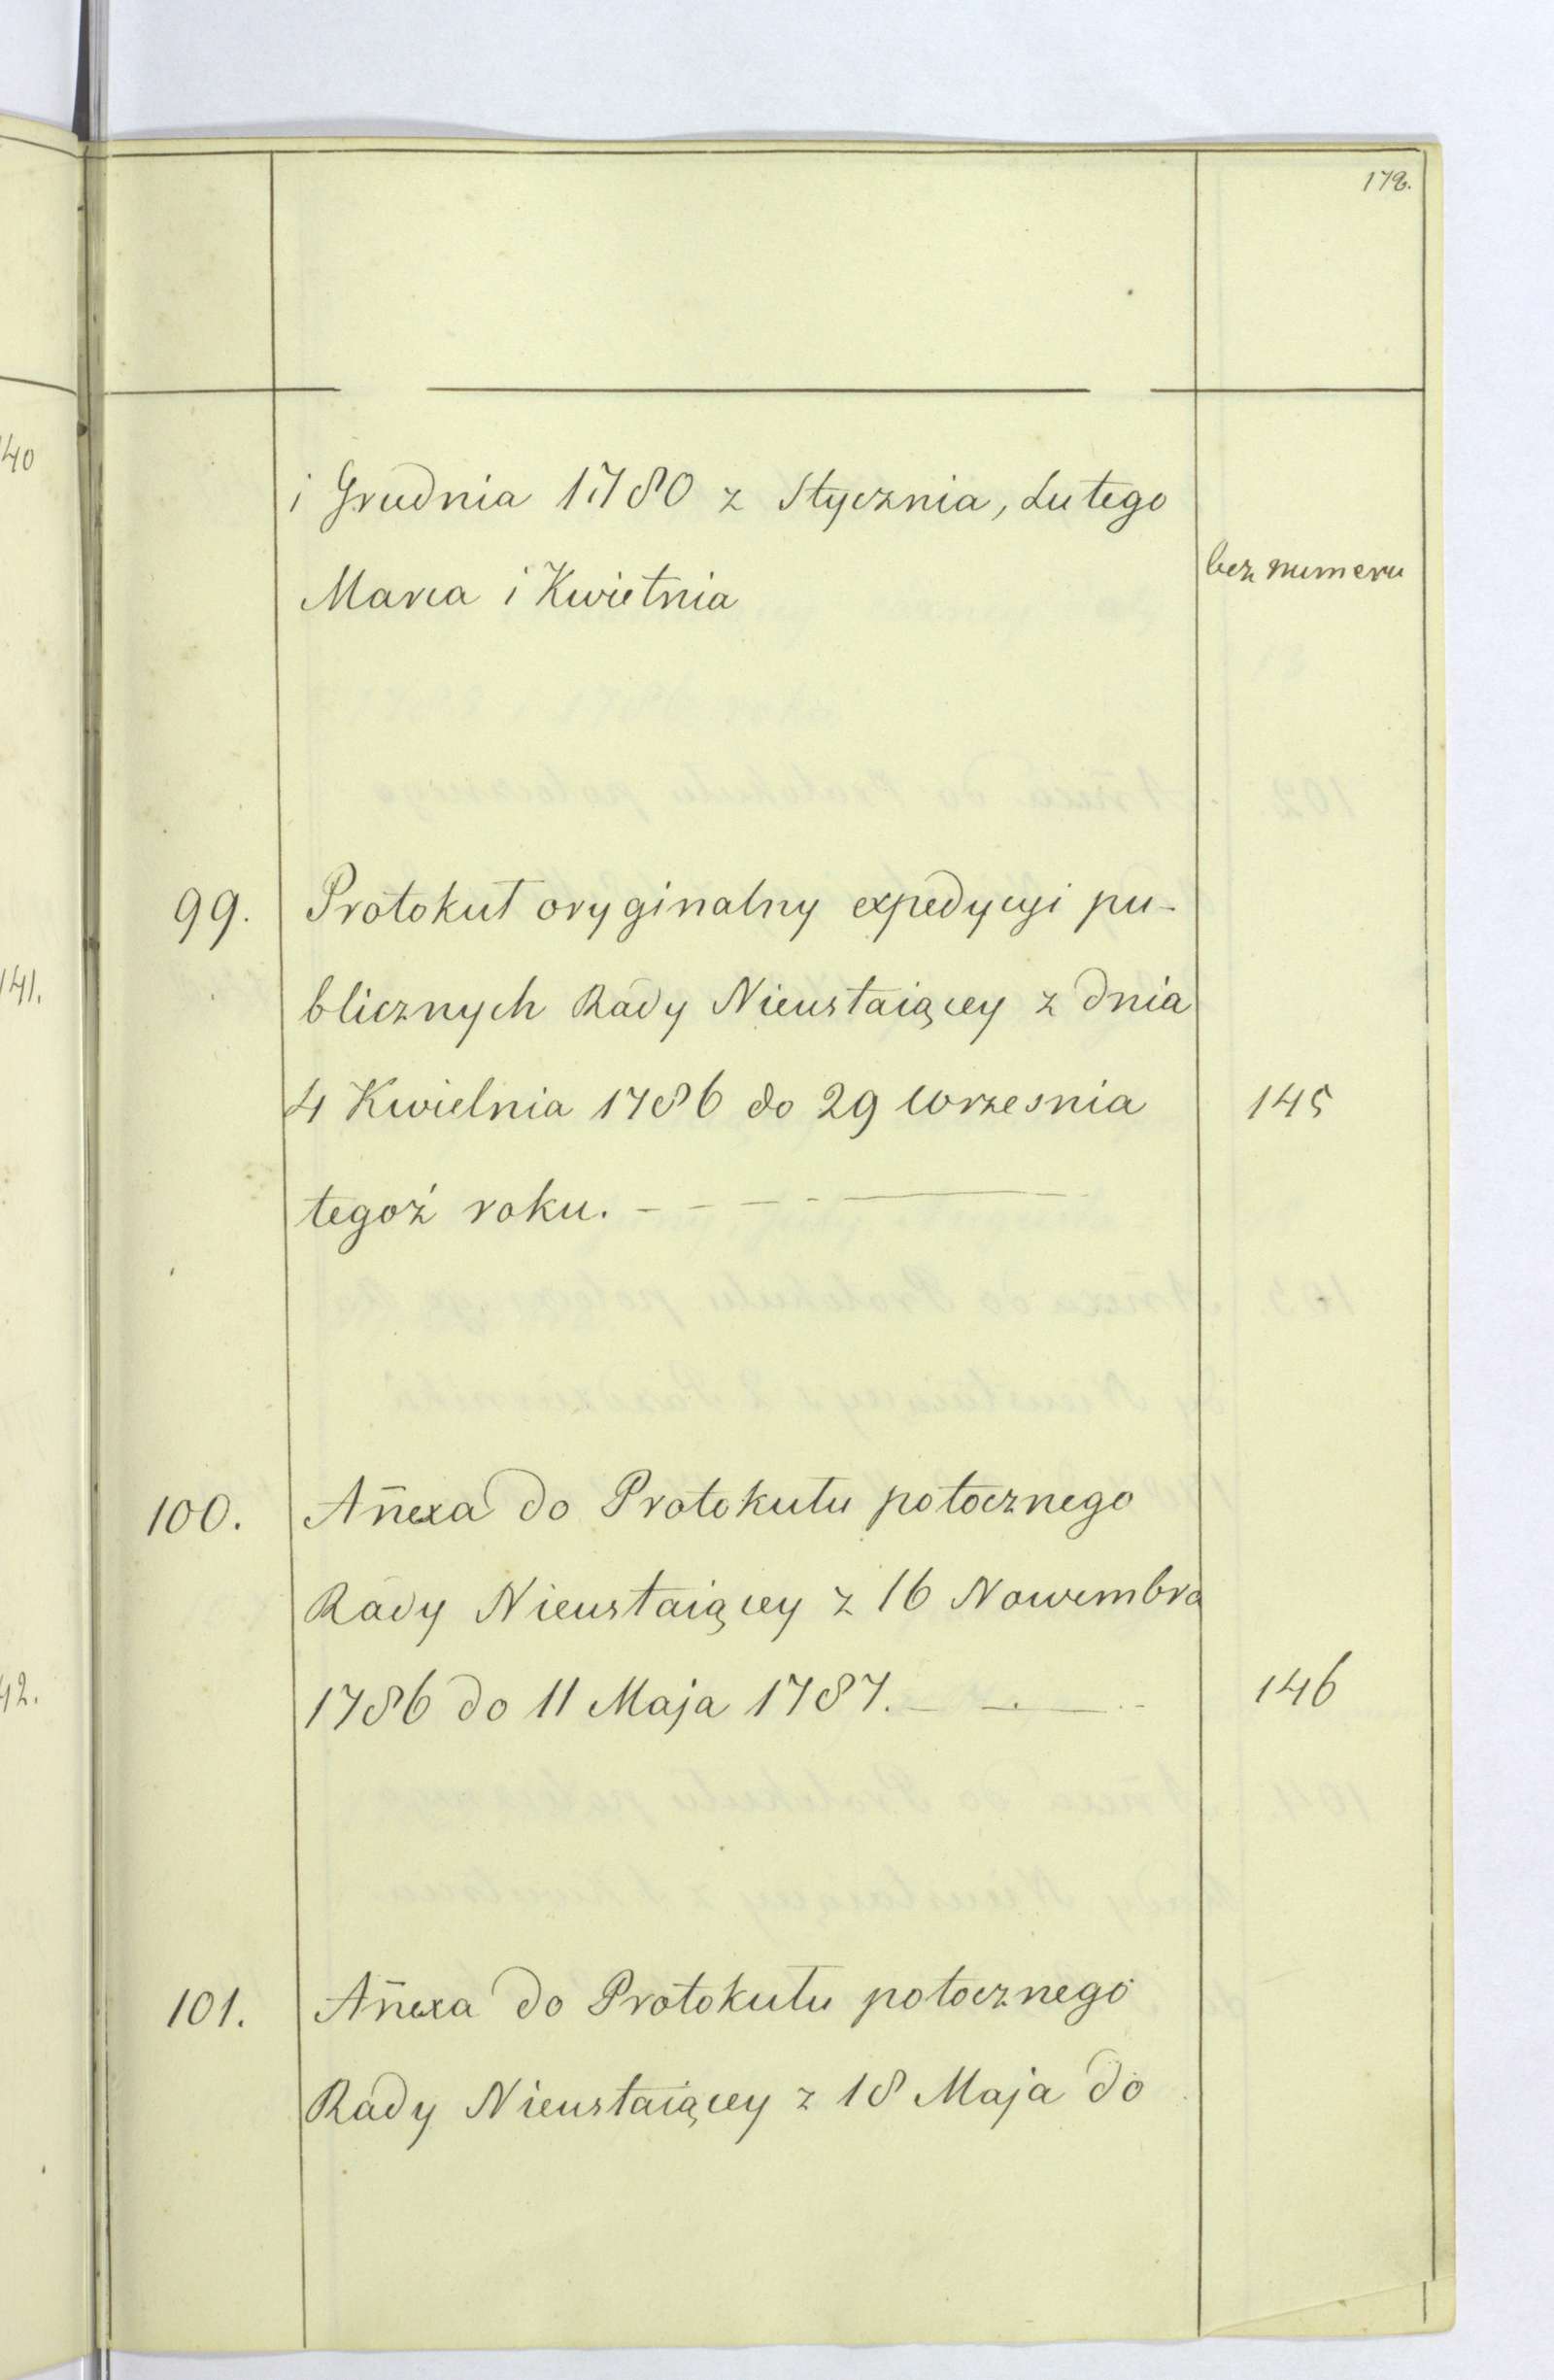 178.
140
i Grudnia 1780 z Stycznia, Lutego
bez numeru
Marca i Kwietnia
99. Protokuł oryginalny expedycyi pu-
blicznych Rady Nieustaiącey z dnia
141.
4 Kwietnia 1786 do 29 Wrzesnia 145
tegoż roku.
100. Añexa do Protokułu potocznego
Rady Nieustaiącey z 16 Nowembra
1786 do 11 Maja 1787. 146
42.
101. Añexa do Protokułu potocznego
Rady Nieustaiącey z 18 Maja do